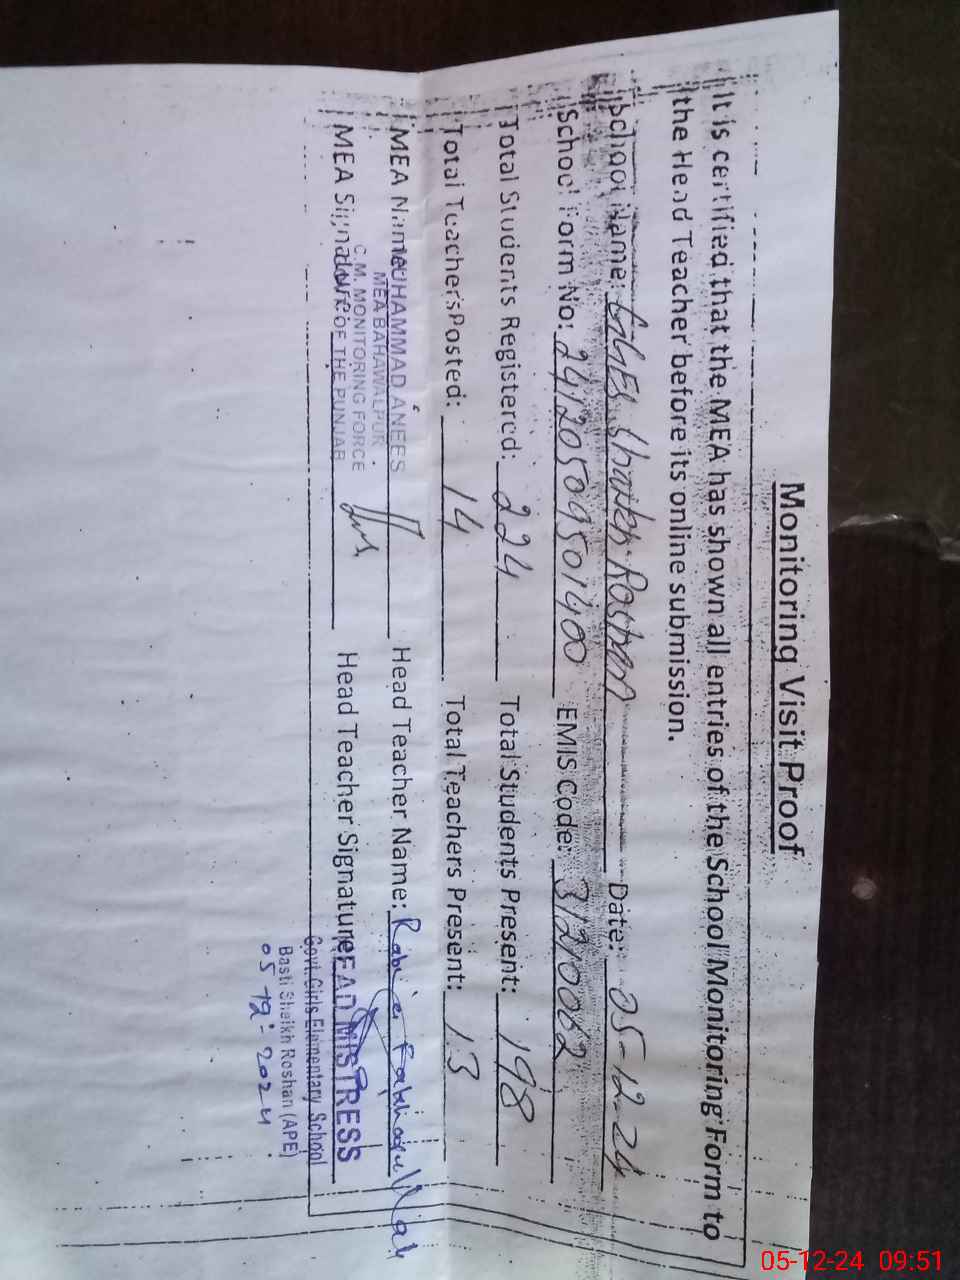 Monitoring Visit Proof
It is certified that the MEA has shown all entries of the School Monitoring Form to
the Head Teacher before its online submission.
School Name: GGES Shaikh Roshan Date: 05-12-24
School Form No: 24120509501400 EMIS Code: 31210062
Total Students Registered: 224 Total Students Present: 198
Total Teachers Posted: 14 Total Teachers Present: 13
MEA Name: MUHAMMAD ANEES Head Teacher Name:
MEA BAHAWALPUR
C.M. MONITORING FORCE
MEA Signature: OF THE PUNJAB Head Teacher Signature: HEAD MISTRESS
Govt. Girls Elementary School
Basti Sheikh Roshan (APE)
05-12-2024
05-12-24 09:51